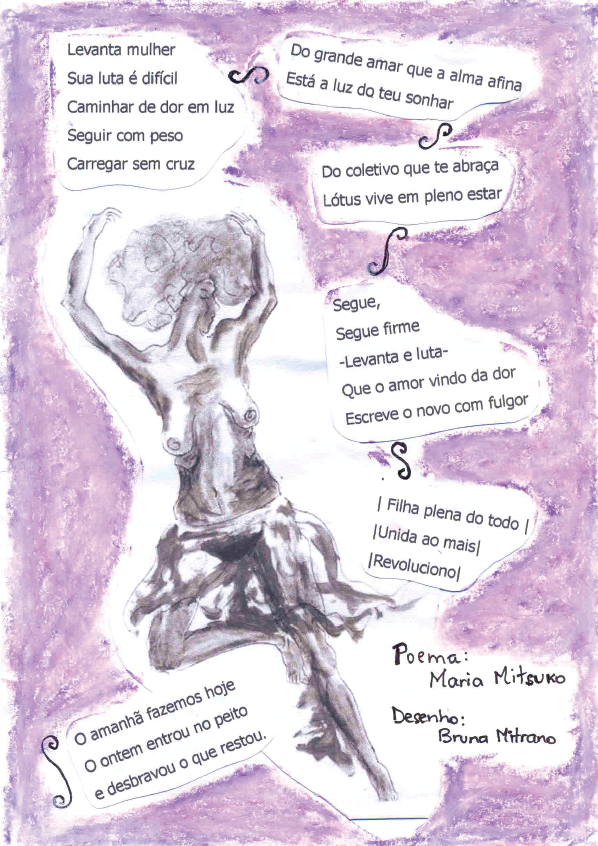 Levanta mulher
Sua luta é difícil
Caminhar de dor em luz
Seguir com peso
Carregar sem cruz
Do grande amar que a alma afina
Está a luz do teu sonhar
Do coletivo que te abraça
Lótus vive em pleno estar
Segue,
Segue firme
-Levanta e luta-
Que o amor vindo da dor
Escreve o novo com fulgor
| Filha plena do todo |
|Unida ao mais|
|Revoluciono|
O amanhã fazemos hoje
O ontem entrou no peito
e desbravou o que restou.
Poema:
Maria Mitsuko
Desenho:
Bruna Mitrano